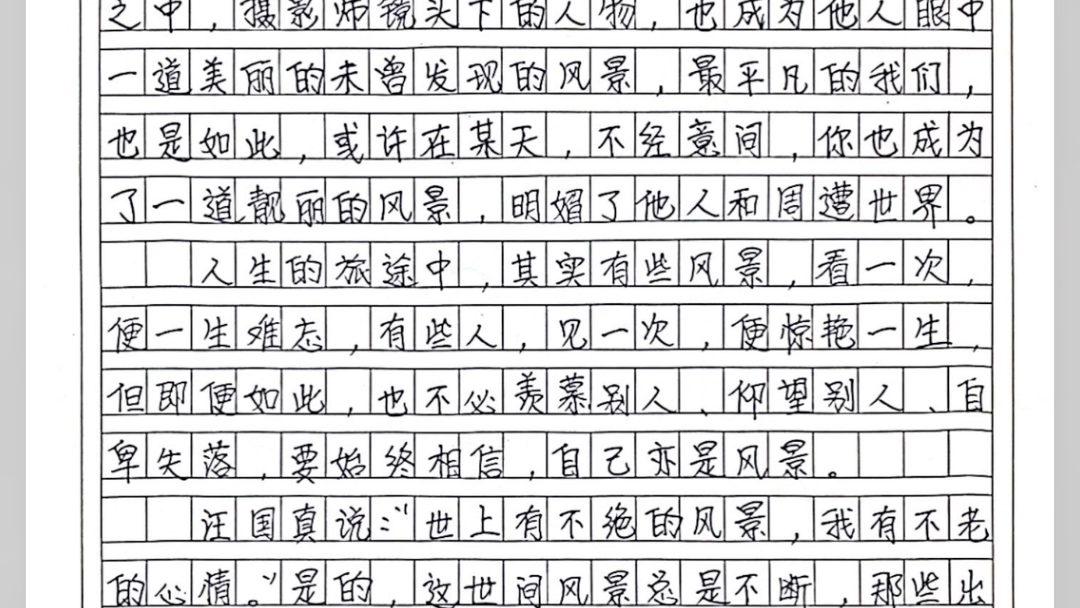 之中，摄影师镜头下的人物，也成为他人眼中
一道美丽的未曾发现的风景，最平凡的我们，
也是如此，或许在某天，不经意间，你也成为
了一道靓丽的风景，明媚了他人和周遭世界。
人生的旅途中，其实有些风景，看一次，
便一生难忘，有些人，见一次，便惊艳一生，
但即便如此，也不必羡慕别人、仰望别人、自
卑失落，要始终相信，自己亦是风景。
汪国真说：“世上有不绝的风景，我有不老
的心情。”是的，这世间风景总是不断，那些出